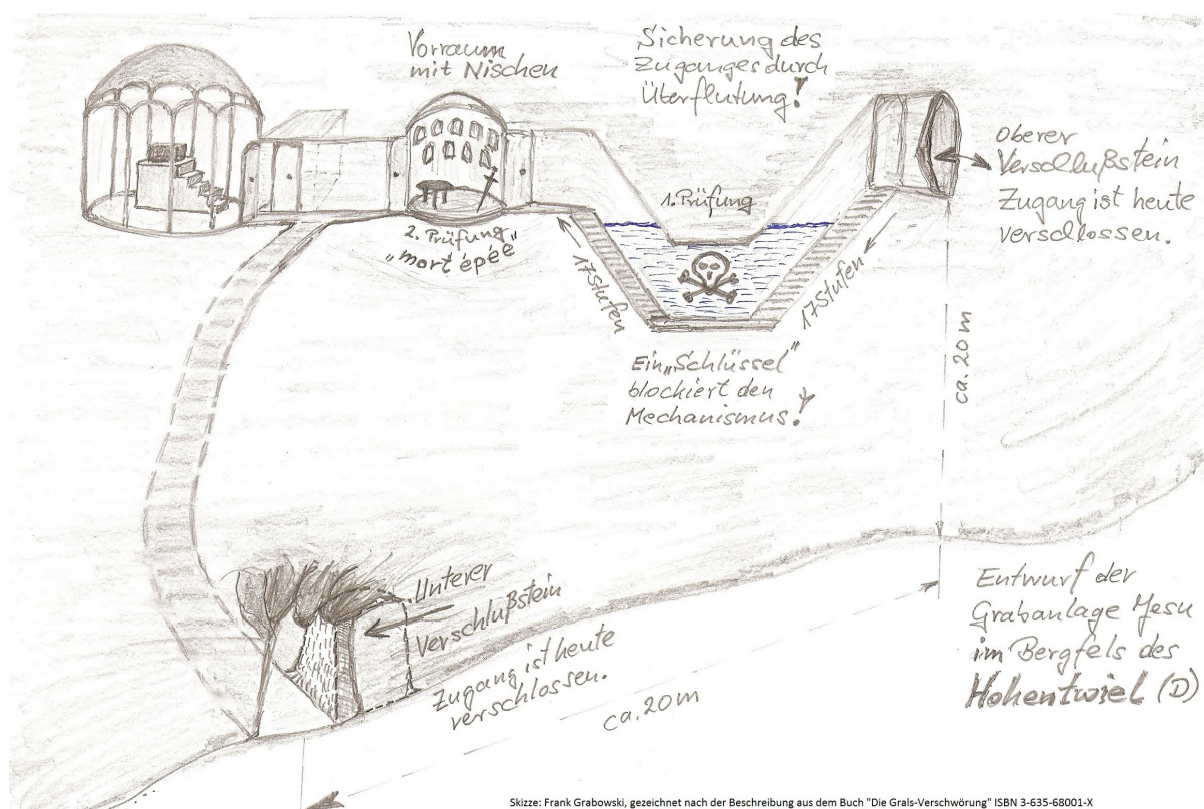 Vorraum
mit Nischen
Sicherung des
Zuganges durch
Überflutung!
Oberer
Verschlußstein
Zugang ist heute
verschlossen.
1. Prüfung
2. Prüfung
"mort épée"
17 Stufen
17 Stufen
Ein "Schlüssel"
blockiert den
Mechanismus!
ca. 20 m
Unterer
Verschlußstein
Zugang ist heute
verschlossen.
ca. 20 m
Entwurf der
Grabanlage Jesu
im Bergfels des
Hohentwiel (D)
Skizze: Frank Grabowski, gezeichnet nach der Beschreibung aus dem Buch "Die Grals-Verschwörung" ISBN 3-635-68001-X